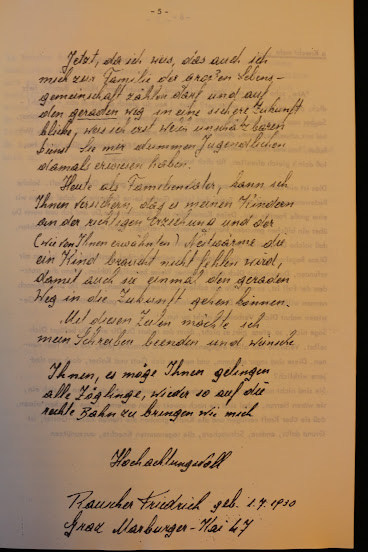 - 5 -
Jetzt, da ich weis, das auch ich
mich zur Familie der großen Lebens-
gemeinschaft zählen darf und auf
den geraden Weg in eine sichere Zukunft
blicke, weis ich erst welch unschätzbaren
Dienst Sie mir dummen Jugendlichen
damals erwiesen haben.
Heute als Familienvater, kann ich
Ihnen versichern, das es meinen Kindern
an der richtigen Erziehung und der
(wie von Ihnen erwähnten) Nestwärme die
ein Kind braucht nicht fehlen wird,
damit auch sie einmal den geraden
Weg in die Zukunft gehen können.
Mit diesen Zeilen möchte ich
mein Schreiben beenden und wünsche
Ihnen, es möge Ihnen gelingen
alle Zöglinge, wieder so auf die
rechte Bahn zu bringen wie mich
Hochachtungsvoll
Rauscher Friedrich geb. 1.7.1930
Graz Marburger-Kai 47